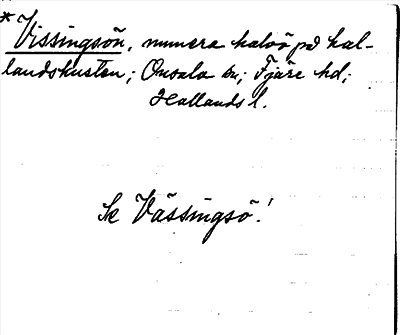 *Vissingsön, numera halvö på hal-
landskusten; Onsala sn; Fjäre hd;
Hallands l.
Se Vässingsö!